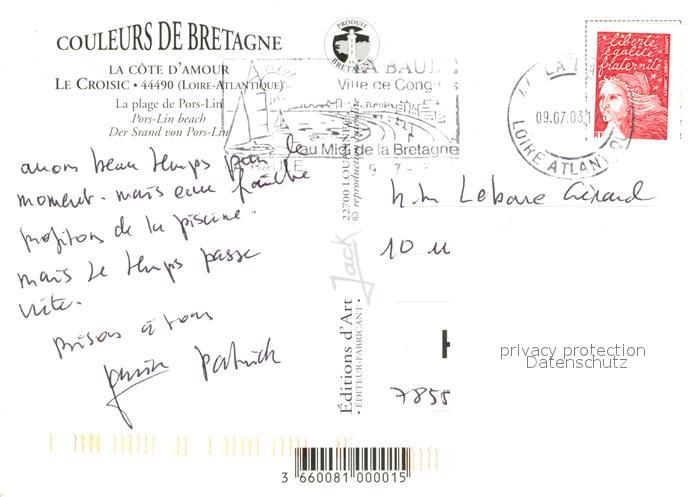 COULEURS DE BRETAGNE
PRODUIT
EN
BRETAGNE
LA CÔTE D'AMOUR
LE CROISIC • 44490 (LOIRE-ATLANTIQUE)
La plage de Pors-Lin
Pors-Lin beach
Der Srand von Pors-Lin
LA BAULE
Ville de Congrès
au Midi de la Bretagne
9 - 7 -
LA
09.07.03
LOIRE ATLANTIQ
liberté
égalité
fraternité
RF
avons beau temps pour le
moment. mais eau fraîche
profitons de la piscine.
mais le temps passe
vite.
bisous à tous
patrick
Gérard
10
7855
22700 LOUANNEC
© reproduction interdite
Jack
Editions d'Art
• ÉDITEUR-FABRICANT •
privacy protection
Datenschutz
3 660081 000015